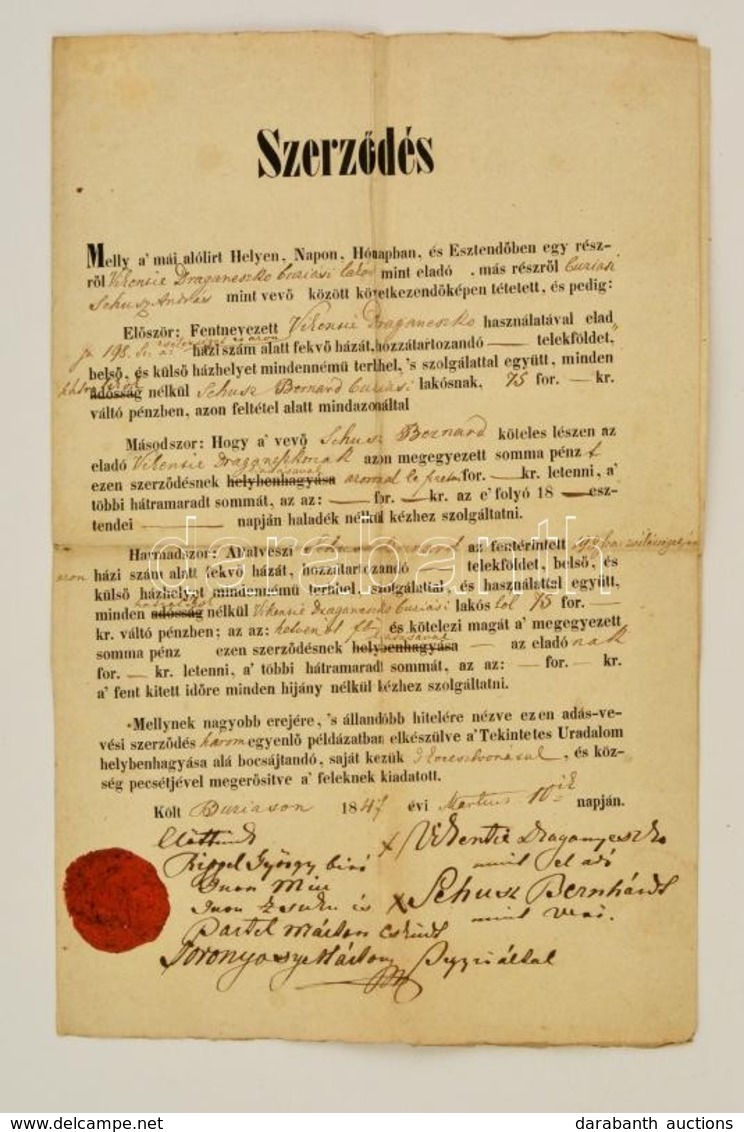 Szerződés
Melly a' mái alólirt Helyen, Napon, Hónapban, és Esztendőben egy rész-
ről Vikentie Draganeszko buziasi lakos mint eladó , más részről buziasi
Schusz András mint vevő között következendőképen tétetett, és pedig:
Először: Fentnevezett Vikentie Draganeszko használatával elad
195. házi szám alatt fekvő házát, hozzátartozandó — telekföldet,
belső, és külső házhelyet mindennémű terhel, 's szolgálattal együtt, minden
adósság nélkül Schusz Bernard buziasi lakósnak, 75 for. — kr.
váltó pénzben, azon feltétel alatt mindazonáltal
Másodszor: Hogy a' vevő Schusz Bernard köteles lészen az
eladó Vikentie Draganeszkonak azon megegyezett somma pénz
ezen szerződésnek helybenhagyása for. — kr. letenni, a'
többi hátramaradt sommát, az az: — for. — kr. az e' folyó 18 — esz-
tendei — napján haladék nélkül kézhez szolgáltatni.
Harmadszor: Által veszi Schusz Bernard az fentérintett
házi szám alatt fekvő házát, hozzátartozandó — telekföldet, belső, és
külső házhelyet mindennémű terhhel, szolgálattal, és használattal együtt,
minden adósság nélkül Vikentie Draganeszko buziasi lakós tól 75 for. —
kr. váltó pénzben; az az: hetven öt ft és kötelezi magát a' megegyezett
somma pénz ezen szerződésnek helybenhagyása — az eladó nak
for. — kr. letenni, a' többi hátramaradt sommát, az az: — for. — kr.
a' fent kitett időre minden hijány nélkül kézhez szolgáltatni.
Mellynek nagyobb erejére, 's állandóbb hitelére nézve ezen adás-ve-
vési szerződés három egyenlő példázatban elkészülve a' Tekintetes Uradalom
helybenhagyása alá bocsájtandó, saját kezük keresztvonásul, és köz-
ség pecsétjével megerősitve a' feleknek kiadatott.
Költ Buziason 1847 évi Martius 10ik napján.
Előttünk
x Vikentie Draganyeszko
mint el adó
György biró
Juon
Juon és
x Schusz Bernhárdt
mint vevő.
Márton Esküdt
által
darabanth
darabanth auctions